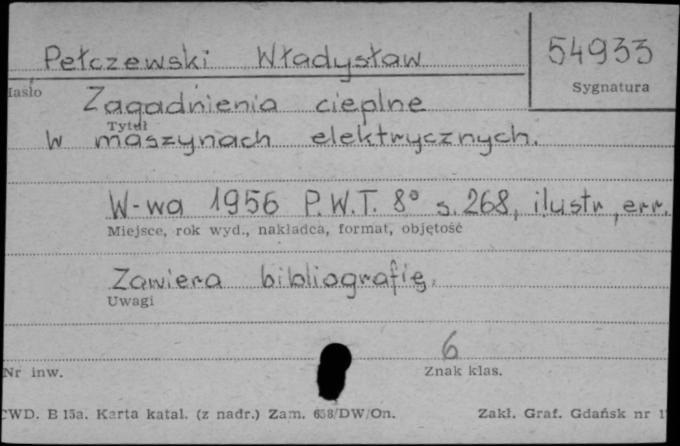 Pełczewski Władysław
54933
Hasło
Sygnatura
Zagadnienia cieplne
Tytuł
w maszynach elektrycznych.
W-wa 1956 P.W.T. 8° s. 268, ilustr, err.
Miejsce, rok wyd., nakładca, format, objętość
Zawiera bibliografię.
Uwagi
6
Nr inw.
Znak klas.
CWD. B 15a. Karta katal. (z nadr.) Zam. 658/DW/On.
Zakł. Graf. Gdańsk nr